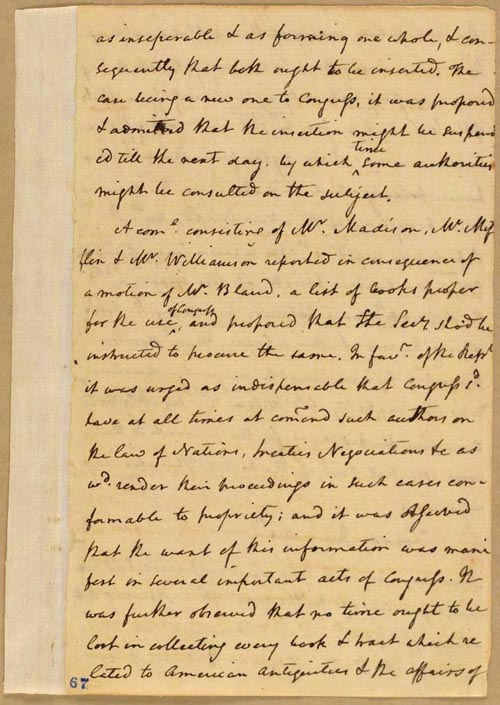 as inseperable & as forming one whole, & con-
sequently that both ought to be inserted. The
case being a new one to Congress, it was proposed
& admitted that the insertion might be suspend
ed till the next day. by which time some authorities
might be consulted on the subject.
A come. consisting of Mr. Madison, Mr. Mif
flin & Mr. Williamson reported in consequence of
a motion of Mr. Bland, a list of books proper
for the use of Congress, and proposed that the Secy. should be
instructed to procure the same. In favr. of the Rept.
it was urged as indispensable that Congress sd.
have at all times at comand such authors on
the law of Nations, treaties Negociations &c as
wd. render their proceedings in such cases con-
formable to propriety; and it was observed
that the want of this information was mani
fest in several important acts of Congress. It
was further observed that no time ought to be
lost in collecting every book & tract which re
lated to American antiquities & the affairs of
67